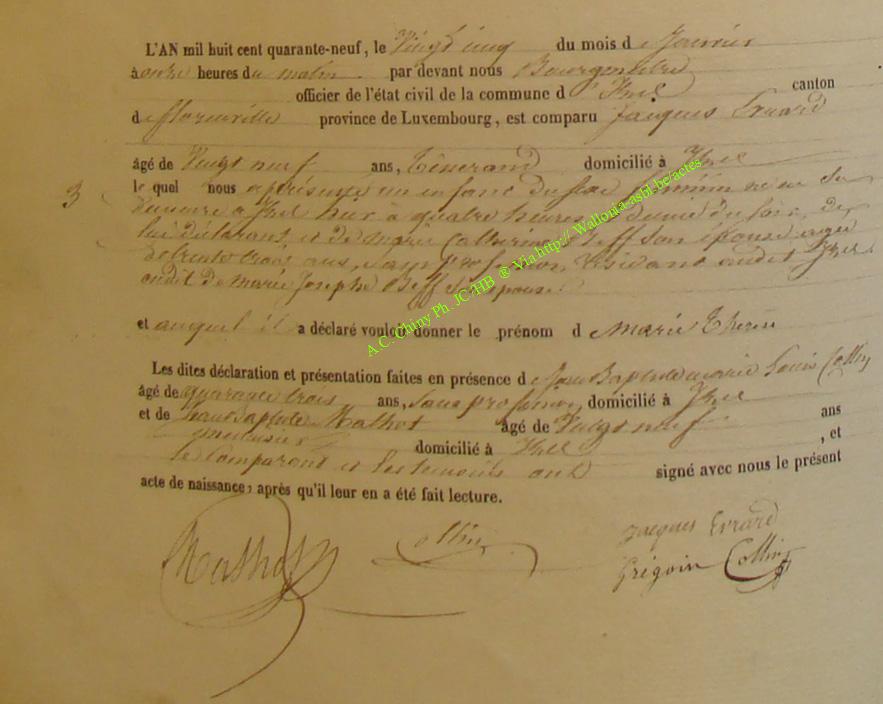 L'AN mil huit cent quarante-neuf, le Vingt cinq du mois d e Janvier
à onze heures du matin par devant nous Bourgmestre
officier de l'état civil de la commune d' Izel canton
d e florenville province de Luxembourg, est comparu Jacques Evrard
âgé de Vingt neuf ans, Tisserand domicilié à Izel
3 le quel nous a présenté un enfant du sexe féminin né en sa
demeure à Izel hier à quatre heures demie du soir, de
lui déclarant, et de marie Catherine son épouse agée
de trente trois ans, sans profession, résidant audit Izel
marie Josephe épouse
et auquel il a déclaré vouloir donner le prénom d e marie Therese
Les dites déclaration et présentation faites en présence d e Jean Baptiste marie Louis Collin
âgé de quarante trois ans, sans profession domicilié à Izel
et de Jean Baptiste Mathot âgé de Vingt neuf ans
menuisier domicilié à Izel , et
le Comparant et les temoins ont signé avec nous le présent
acte de naissance, après qu'il leur en a été fait lecture.
Mathot Collin Jacques Evrard
Grégoir Collin
A.C. Chiny Ph. JC/HB ® Via http://Wallonia-asbl-be/actes